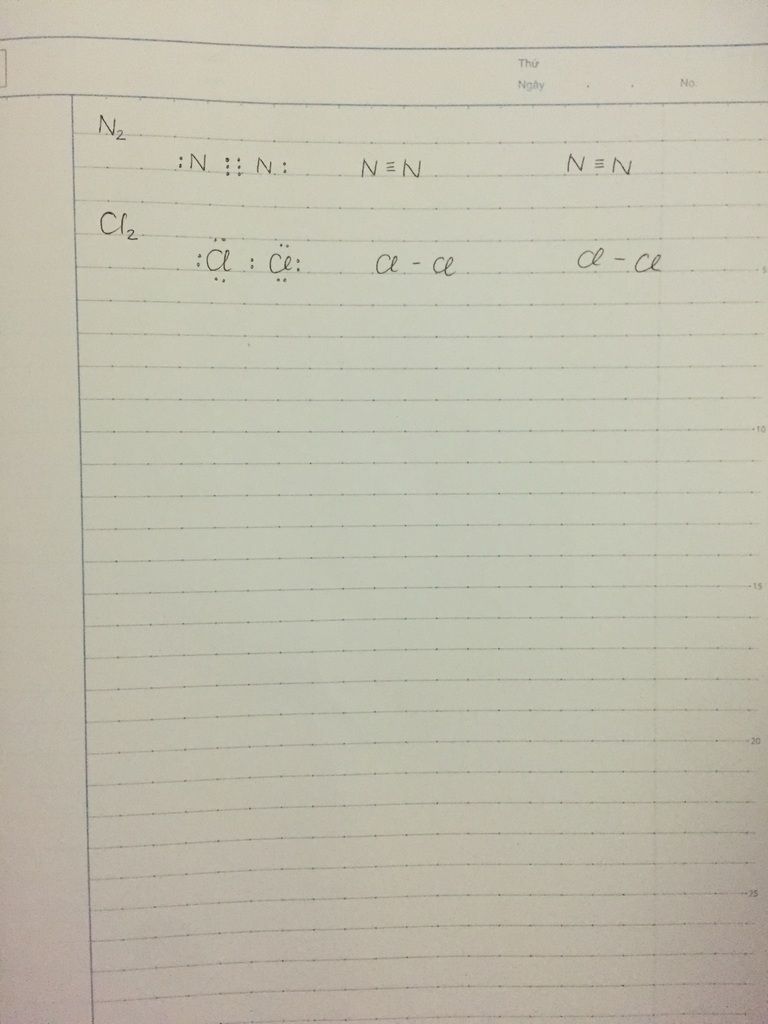 Thứ
Ngày . . No.
N₂
:N ⋮⋮ N: N≡N N≡N
Cl₂
:C̈l̤ : C̈l̤: Cl - Cl Cl - Cl
5
10
15
20
25